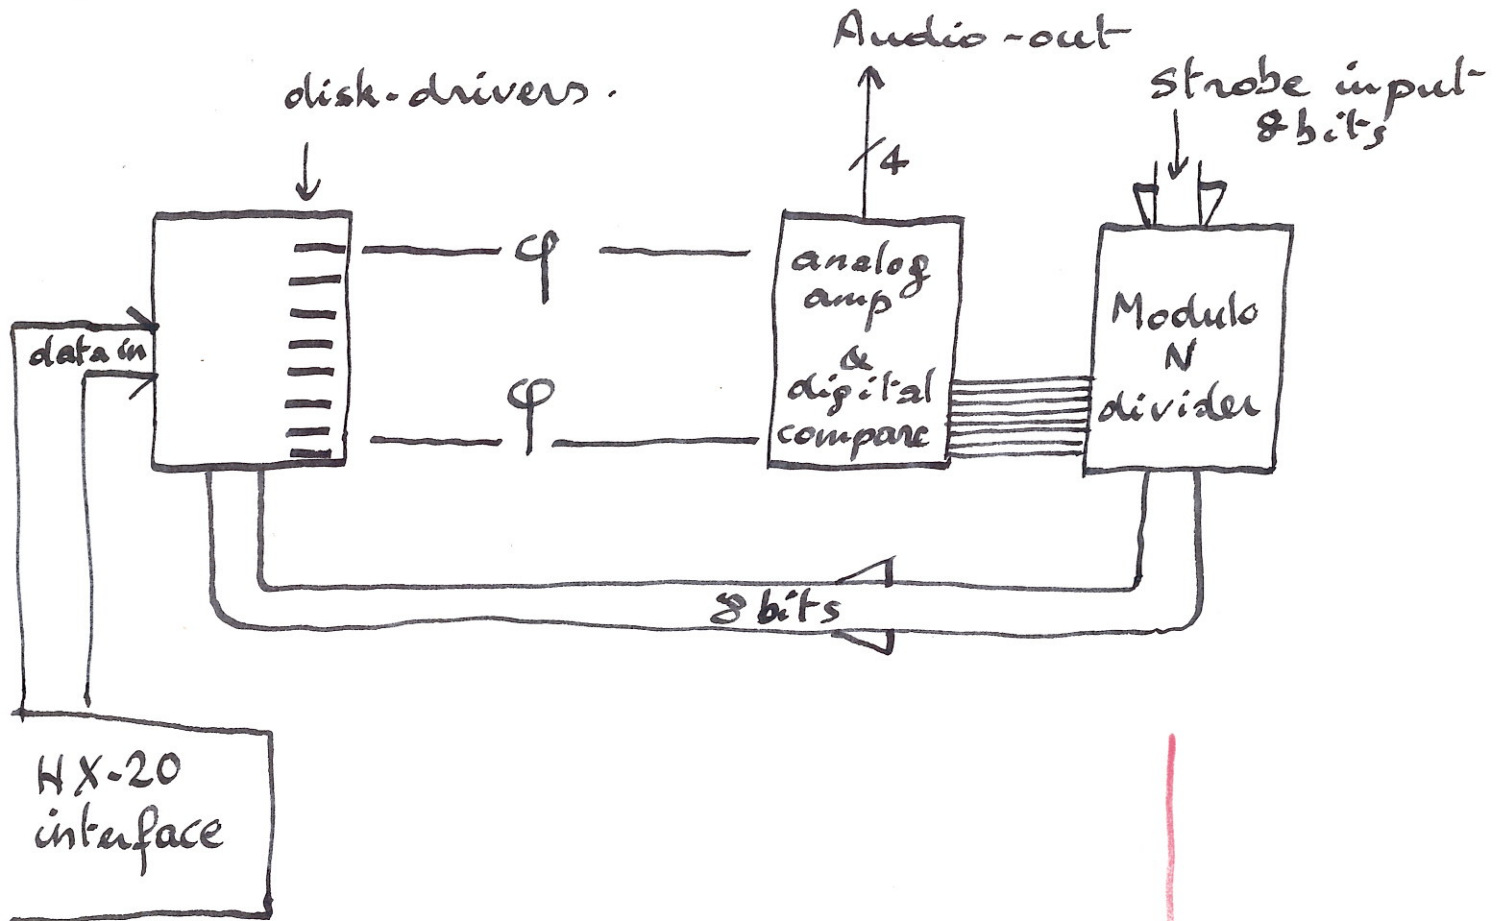 Audio-out
disk-drivers.
strobe input
8 bits
4
φ
analog
amp
&
digital
compare
Modulo
N
divider
data in
φ
8 bits
HX-20
interface